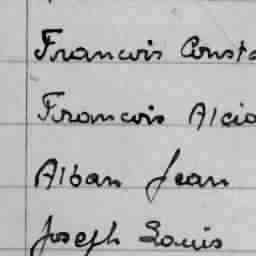 Francois Consta
Francois Alcid
Alban Jean
Joseph Louis